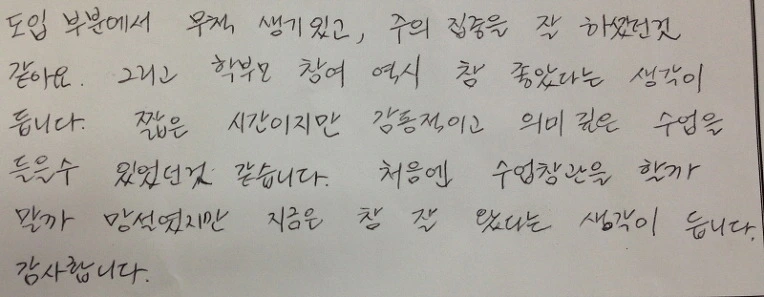 도입 부분에서 무척 생기있고, 주의 집중을 잘 하셨던것
같아요. 그리고 학부모 참여 역시 참 좋았다는 생각이
듭니다. 짧은 시간이지만 감동적이고 의미 깊은 수업을
들을수 있었던것 같습니다. 처음엔 수업참관을 할까
말까 망설였지만 지금은 참 잘 왔다는 생각이 듭니다.
감사합니다.